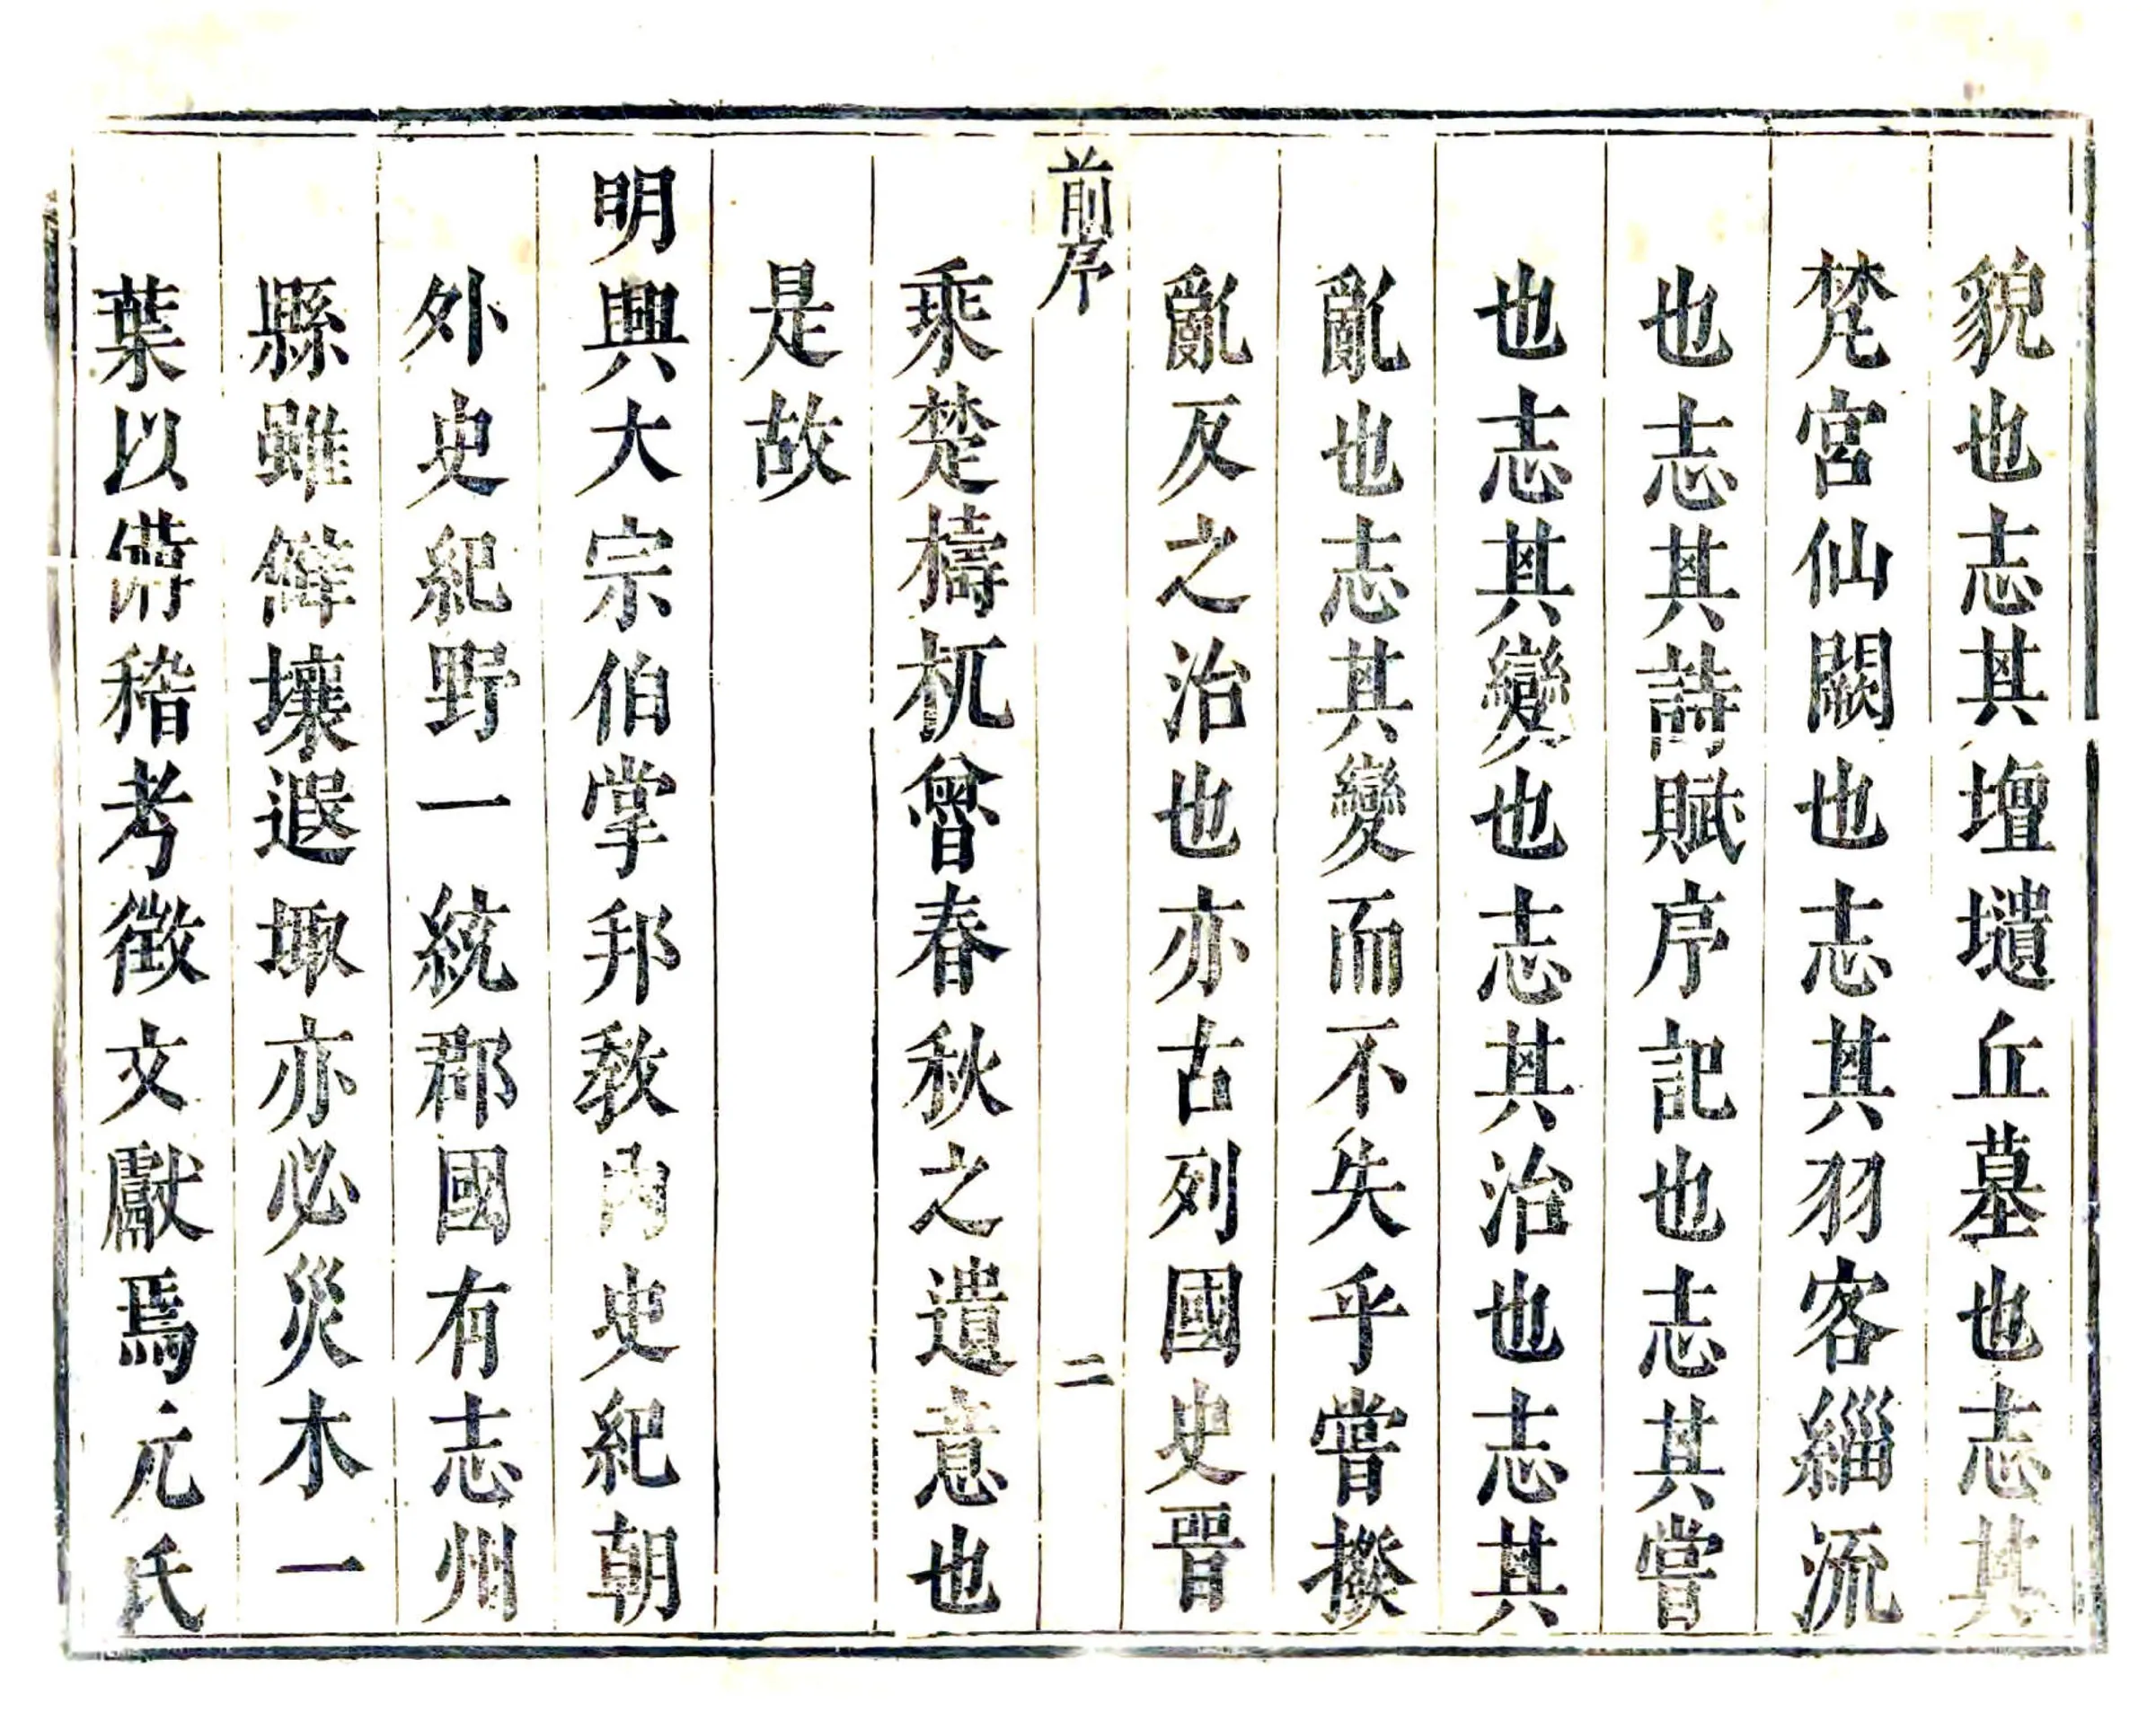 貌也志其壇壝丘墓也志其
梵宮仙闕也志其羽客緇流
也志其詩賦序記也志其嘗
也志其變也志其治也志其
亂也志其變而不失乎嘗撥
亂反之治也亦古列國史晉
前序
二
乘楚檮杌魯春秋之遺意也
是故
明興大宗伯掌邦敎內史紀朝
外史紀野一統郡國有志州
縣雖僻壤遐陬亦必災木一
葉以備稽考徵文獻焉元氏